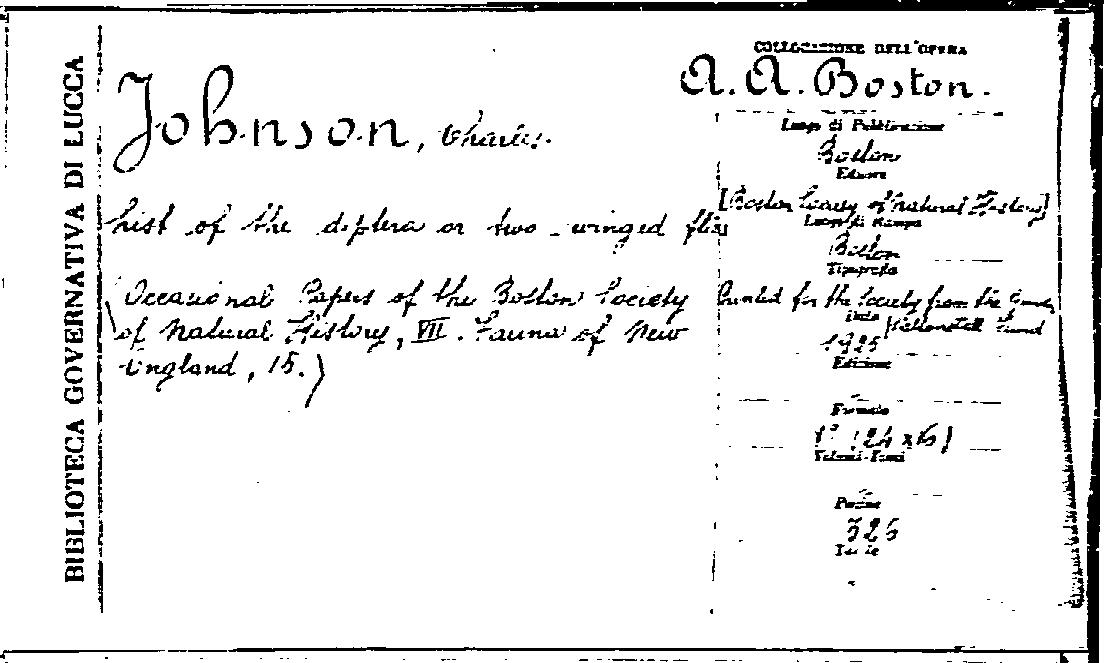 BIBLIOTECA GOVERNATIVA DI LUCCA
Johnson, Charles.
List of the diptera or two-winged flies
(Occasional Papers of the Boston Society
of Natural History, VII. Fauna of New
England, 15.)
COLLOCAZIONE DELL'OPERA
A. A. Boston.
Luogo di Pubblicazione
Boston
Editore
[Boston Society of Natural History]
Luogo di Stampa
Boston
Tipografia
Printed for the Society from the
Data
1925
Edizione
Formato
(24 x 16)
Volumi-Tomi
Pagine
326
Tavole